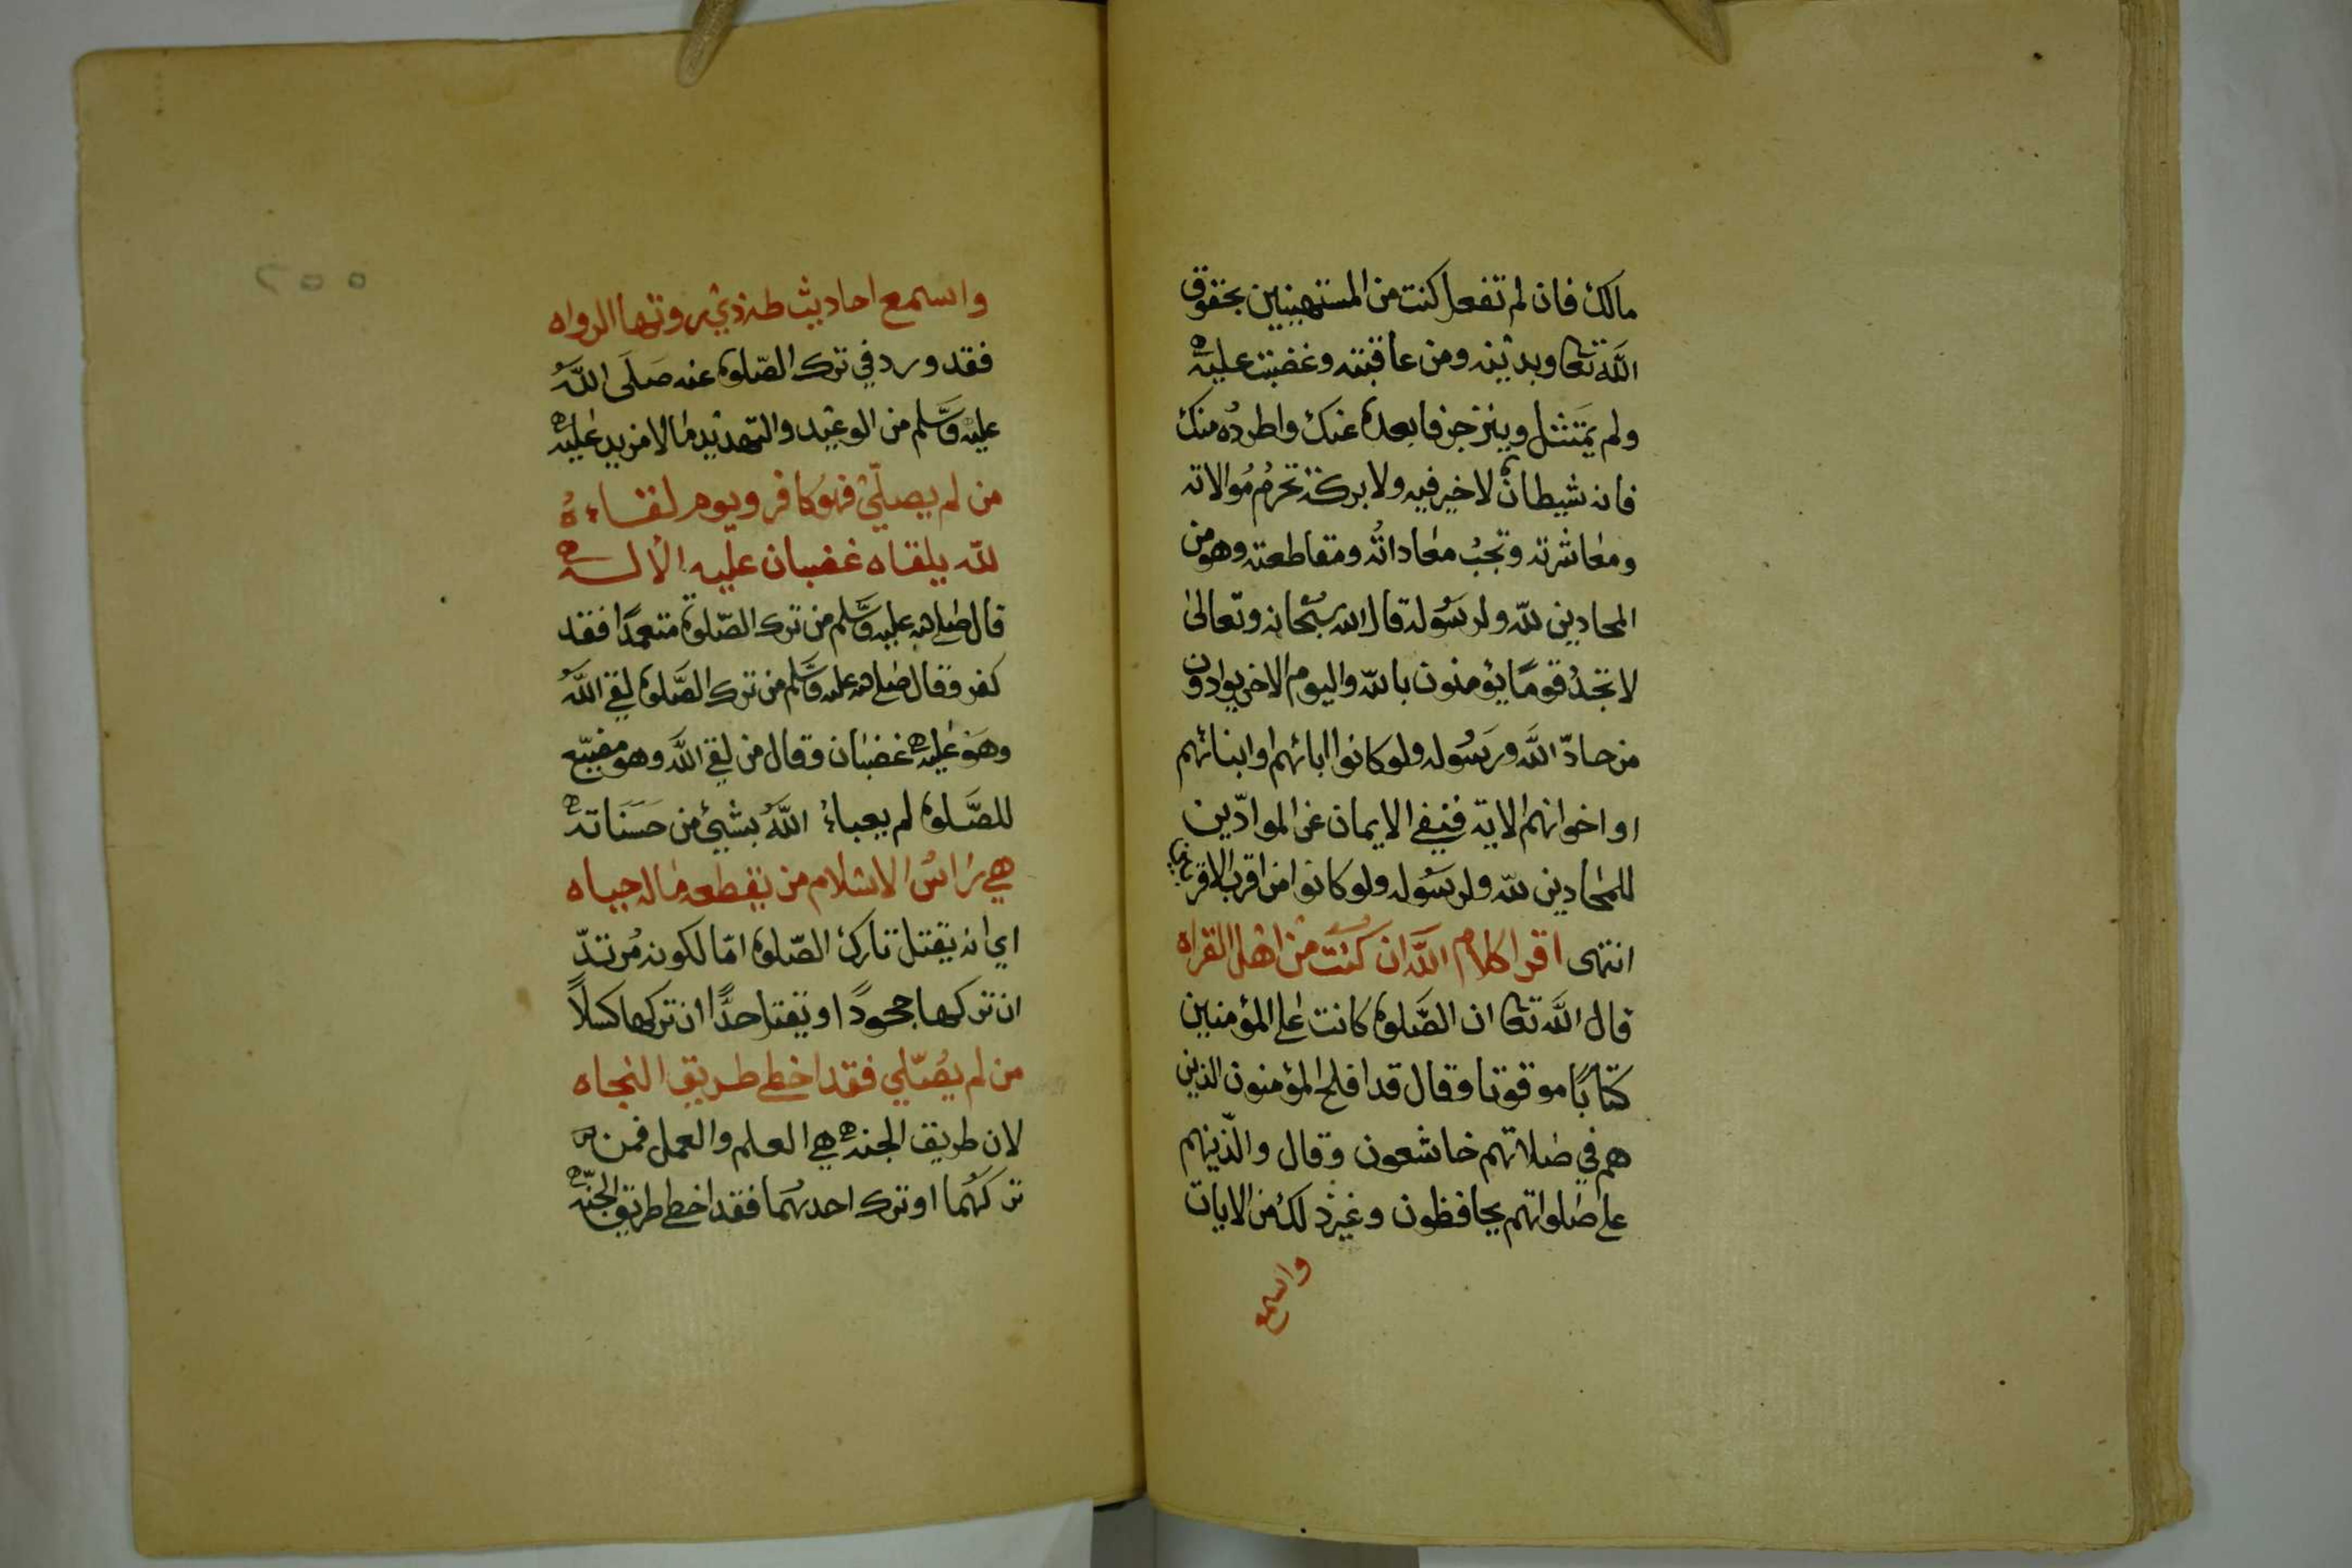 مالك فان لم تفعل كنت من المستهينين بحقوق
الله تعا وبدينه ومن عاقبته وغضبت عليه
ولم يمتثل وينزجز فابعده عنك واطرده منك
فانه شيطان لا خير فيه ولا بركة تحرم موالاته
ومعاشرته وتجب معاداته ومقاطعته وهو من
المحادين لله ولرسوله قال الله سبحانه وتعالى
لا تجد قوما يؤمنون بالله واليوم الاخر يوادون
من حادّ الله ورسوله ولو كانوا ابائهم او ابنائهم
او اخوانهم الاية فنفى الايمان عن الموادّين
للمحادين لله ولرسوله ولو كانوا من اقرب الاقربين
انتهى اقرا كلام الله ان كنت من اهل القراه
قال الله تعا ان الصّلوة كانت على المؤمنين
كتابًا موقوتا وقال قد افلح المؤمنون الذين
هم في صلاتهم خاشعون وقال والّذينهم
على صلواتهم يحافظون وغير ذلك من الايات
واسمع
٢٠٠
واسمع احاديث طه ذي روتها الرواه
فقد ورد في ترك الصّلوة عنه صَلَى اللَّهُ
عليه وَسَّلم من الوعيد والتهديد ما لا مزيد عليه
من لم يصلّي فهُو كافر ويوم لقاءهُ
لله يلقاه غضبان عليه الاله
قال صلى الله عليه وسَّلم من ترك الصّلوة متعمدًا فقد
كفر وقال صلى الله عليه وسَّلم من ترك الصَّلوة لقي اللَّهُ
وهَو عليه غضبان وقال من لقي اللَّه وهو مضيّع
للصَّلوة لم يعباءُ اللَّهُ بشيئ من حَسَنَاته
هي راسُ الاسلام من يقطعه ماله حياه
اي انه يقتل تارك الصّلوة امّا لكونه مُرتدّ
ان تركها جحودً او يقتل حدًّا ان تركها كسلاً
من لم يُصّلي فقد اخطى طريق النجاه
لان طريق الجنه هي العلم والعمل فمن
تركهُما او ترك احدهُما فقد اخطى طريق الجنّه